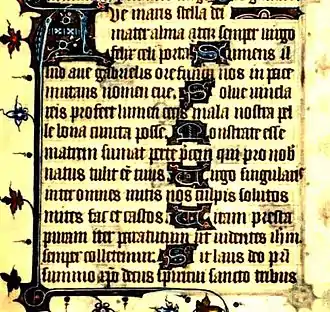 Ave maris stella dei
mater alma atq semper uirgo
felix celi porta Sumens il
lud aue gabrielis ore funda nos in pace
mutans nomen eue Solue uincla
reis profer lumen cecis mala nostra pel
le bona cuncta posce Monstrate esse
matrem sumat per te precem qui pro nob
natus tulit ee tuus Uirgo singularis
inter omnes mitis nos culpis solutos
mites fac et castos Uitam presta
puram iter para tutum ut uidentes ihm
semper colletemur Sit laus deo pri
summo xpo decus spiritui sancto tribus